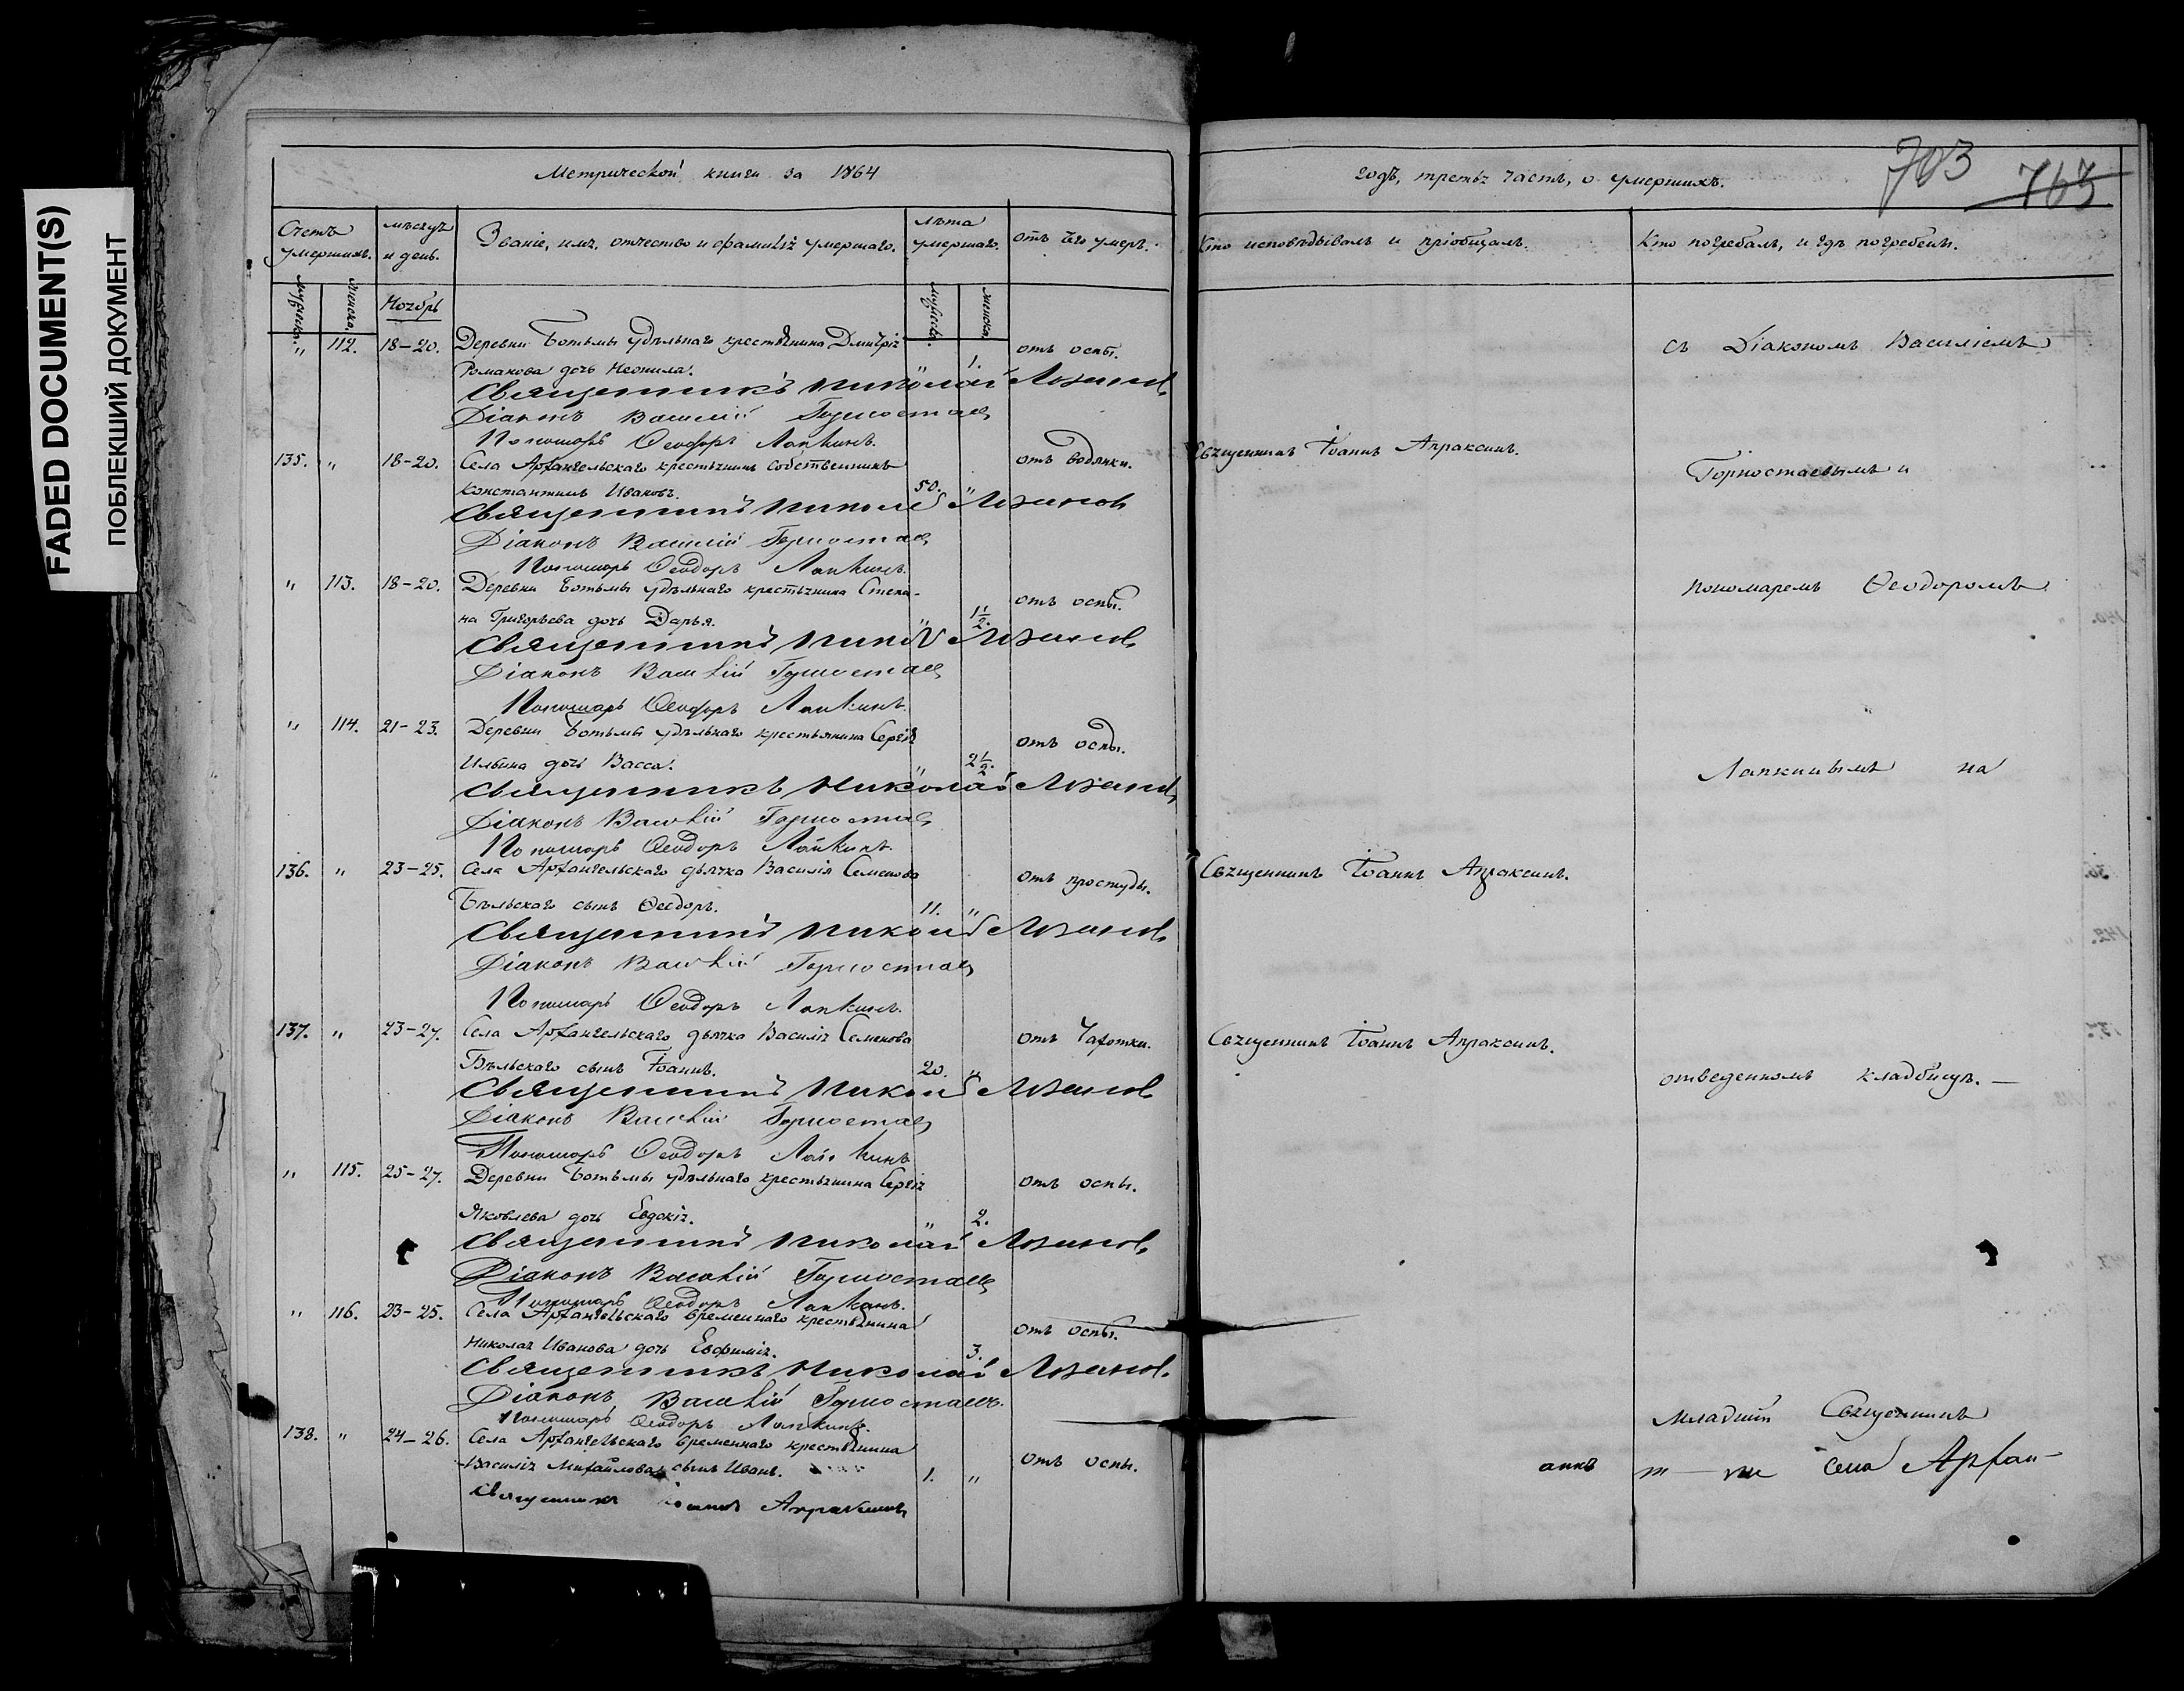 FADED DOCUMENT(S)
ПОБЛЕКШИЙ ДОКУМЕНТ
Метрической книги за 1864
Счетъ умершихъ.
мѣсяцъ и день.
Званіе, имя, отчество и фамилія умершаго.
лѣта умершаго.
отъ чего умеръ.
мужеска.
женска.
Ноябрь
мужеска.
женска.
" 112. 18-20. Деревни Ботьмы удѣльнаго крестьянина Дмитрія
Романова дочь Неонила. " 1. отъ оспы.
Священникъ Николай
Діаконъ Василій Горностаев
Пономарь Ѳеодоръ Лапкинъ.
135. " 18-20. Села Архангельскаго крестьянинъ собственникъ
Константинъ Ивановъ. 50. " отъ водянки.
Священникъ Николай
Діаконъ Василій Горностаев
Пономарь Ѳеодоръ Лапкинъ.
" 113. 18-20. Деревни Ботьмы удѣльнаго крестьянина Степа-
на Григорьева дочь Дарья. " 1 1/2. отъ оспы.
Священникъ Николай
Діаконъ Василій Горностаев
Пономарь Ѳеодоръ Лапкинъ.
" 114. 21-23. Деревни Ботьмы удѣльнаго крестьянина Сергія
Ильина дочь Васса. " 2 1/2. отъ оспы.
Священникъ Николай
Діаконъ Василій Горностаев
Пономарь Ѳеодоръ Лапкинъ.
136. " 23-25. Села Архангельскаго дьячка Василія Семенова
Бѣльскаго сынъ Ѳеодоръ. 11. " отъ простуды.
Священникъ Николай
Діаконъ Василій Горностаев
Пономарь Ѳеодоръ Лапкинъ.
137. " 23-27. Села Архангельскаго дьячка Василія Семенова
Бѣльскаго сынъ Іоаннъ. 20. " отъ Чахотки.
Священникъ Николай
Діаконъ Василій Горностаев
Пономарь Ѳеодоръ Лапкинъ
" 115. 25-27. Деревни Ботьмы удѣльнаго крестьянина Сергія
Яковлева дочь Евдокія. " 2. отъ оспы.
Священникъ Николай
Діаконъ Василій Горностаев
Пономарь Ѳеодоръ Лапкинъ.
" 116. 23-25. Села Архангельскаго временнаго крестьянина
Николая Иванова дочь Евфимія. 3. отъ оспы.
Священникъ Николай
Діаконъ Василій Горностаевъ.
Пономарь Ѳеодоръ Лапкинъ.
138. " 24-26. Села Архангельскаго временнаго крестьянина
Василія Михайлова сынъ Иванъ. 1. " отъ оспы.
Священникъ Іоаннъ Апраксинъ
годъ, третья часть, о умершихъ.
703
763
Кто исповѣдывалъ и пріобщалъ.
Кто погребалъ, и гдѣ погребенъ.
съ Діакономъ Василіемъ
Священникъ Іоаннъ Апраксинъ.
Горностаевымъ и
пономаремъ Ѳеодоромъ
Лапкинымъ на
Священникъ Іоаннъ Апраксинъ.
Священникъ Іоаннъ Апраксинъ.
отведенномъ кладбищѣ. —
Младшій Священникъ
села Архан-